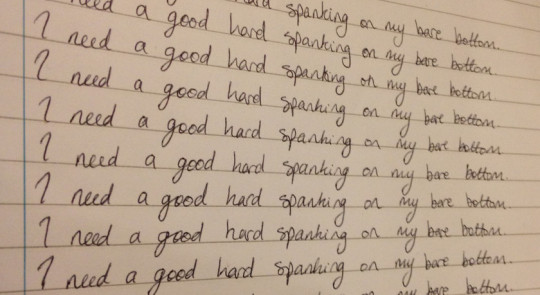 need a good hard spanking on my bare bottom.
I need a good hard spanking on my bare bottom.
I need a good hard spanking on my bare bottom.
I need a good hard spanking on my bare bottom.
I need a good hard spanking on my bare bottom.
I need a good hard spanking on my bare bottom.
I need a good hard spanking on my bare bottom.
I need a good hard spanking on my bare bottom.
my bare bottom.